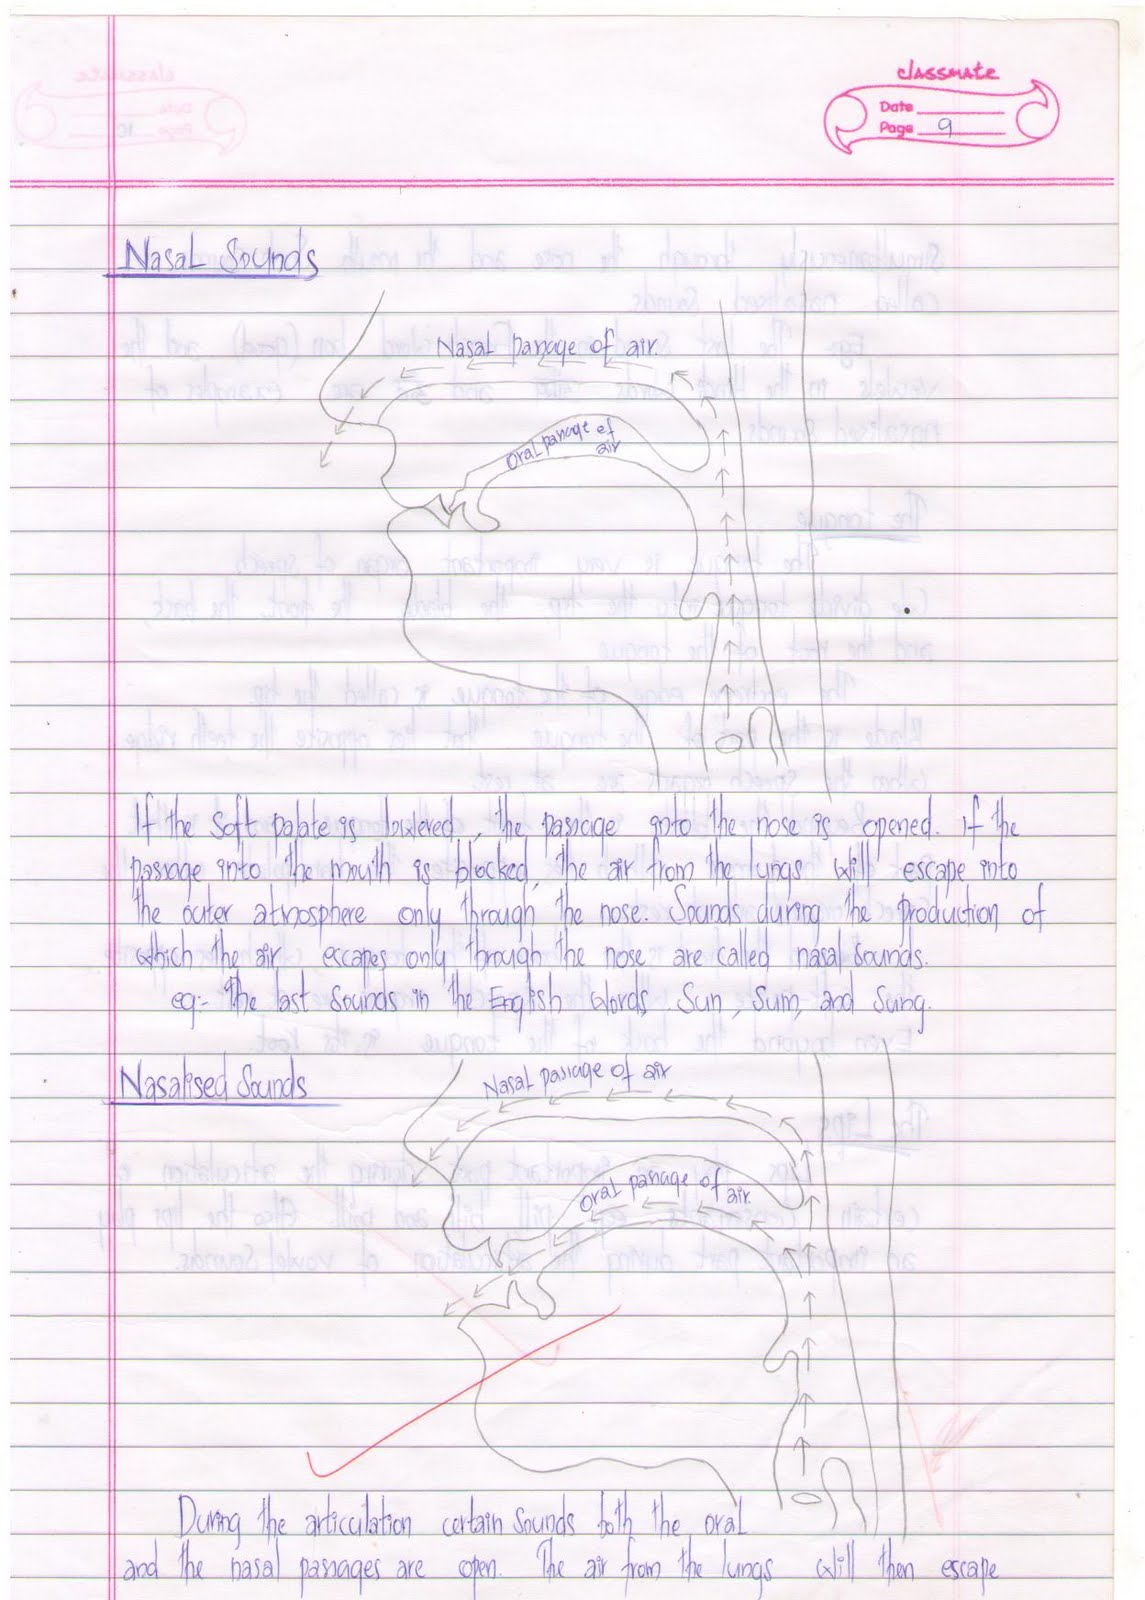 classmate
Date
Page 9
Nasal Sounds
Nasal passage of air.
Oral passage of
air
If the soft palate is lowered, the passage into the nose is opened. if the
passage into the mouth is blocked, the air from the lungs will escape into
the outer atmosphere only through the nose. Sounds during the production of
which the air escapes only through the nose are called nasal sounds.
eg:- The last sounds in the English words Sun, Sum, and Sung.
Nasalised Sounds
Nasal passage of air
Oral passage of
air.
During the articulation certain sounds both the oral
and the nasal passages are open. The air from the lungs will then escape